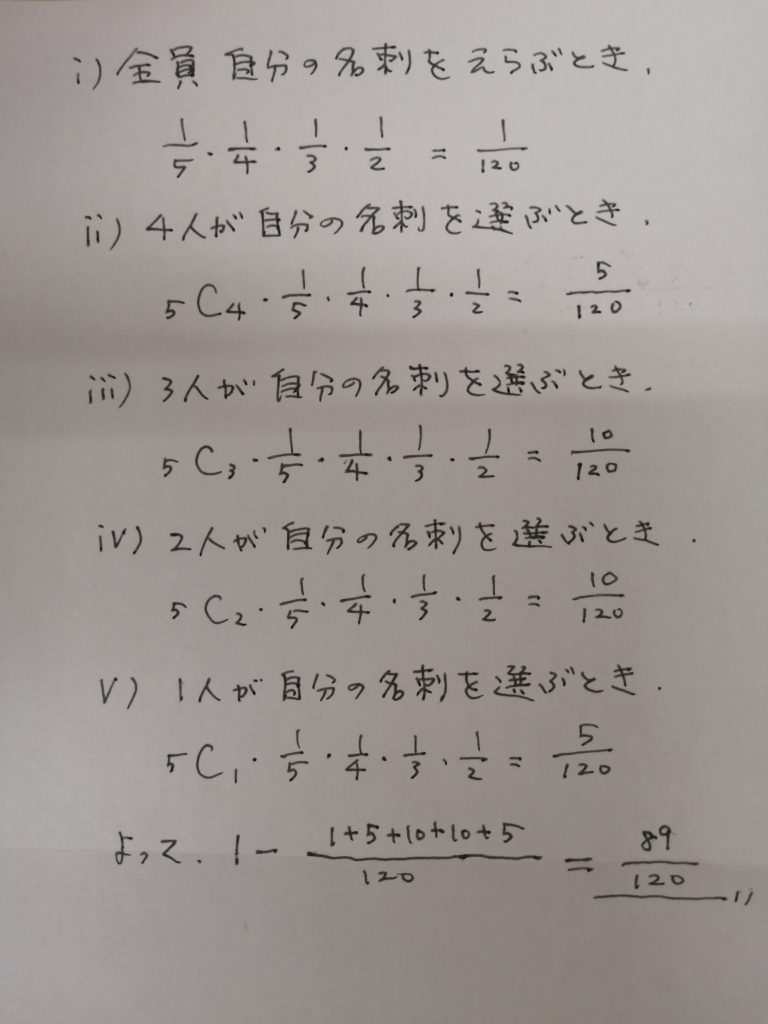 i) 全員 自分の名刺をえらぶとき.
1/5 · 1/4 · 1/3 · 1/2 = 1/120
ii) 4人が自分の名刺を選ぶとき.
5C4 · 1/5 · 1/4 · 1/3 · 1/2 = 5/120
iii) 3人が自分の名刺を選ぶとき.
5C3 · 1/5 · 1/4 · 1/3 · 1/2 = 10/120
iv) 2人が自分の名刺を選ぶとき.
5C2 · 1/5 · 1/4 · 1/3 · 1/2 = 10/120
V) 1人が自分の名刺を選ぶとき.
5C1 · 1/5 · 1/4 · 1/3 · 1/2 = 5/120
よって. 1 - (1+5+10+10+5)/120 = 89/120